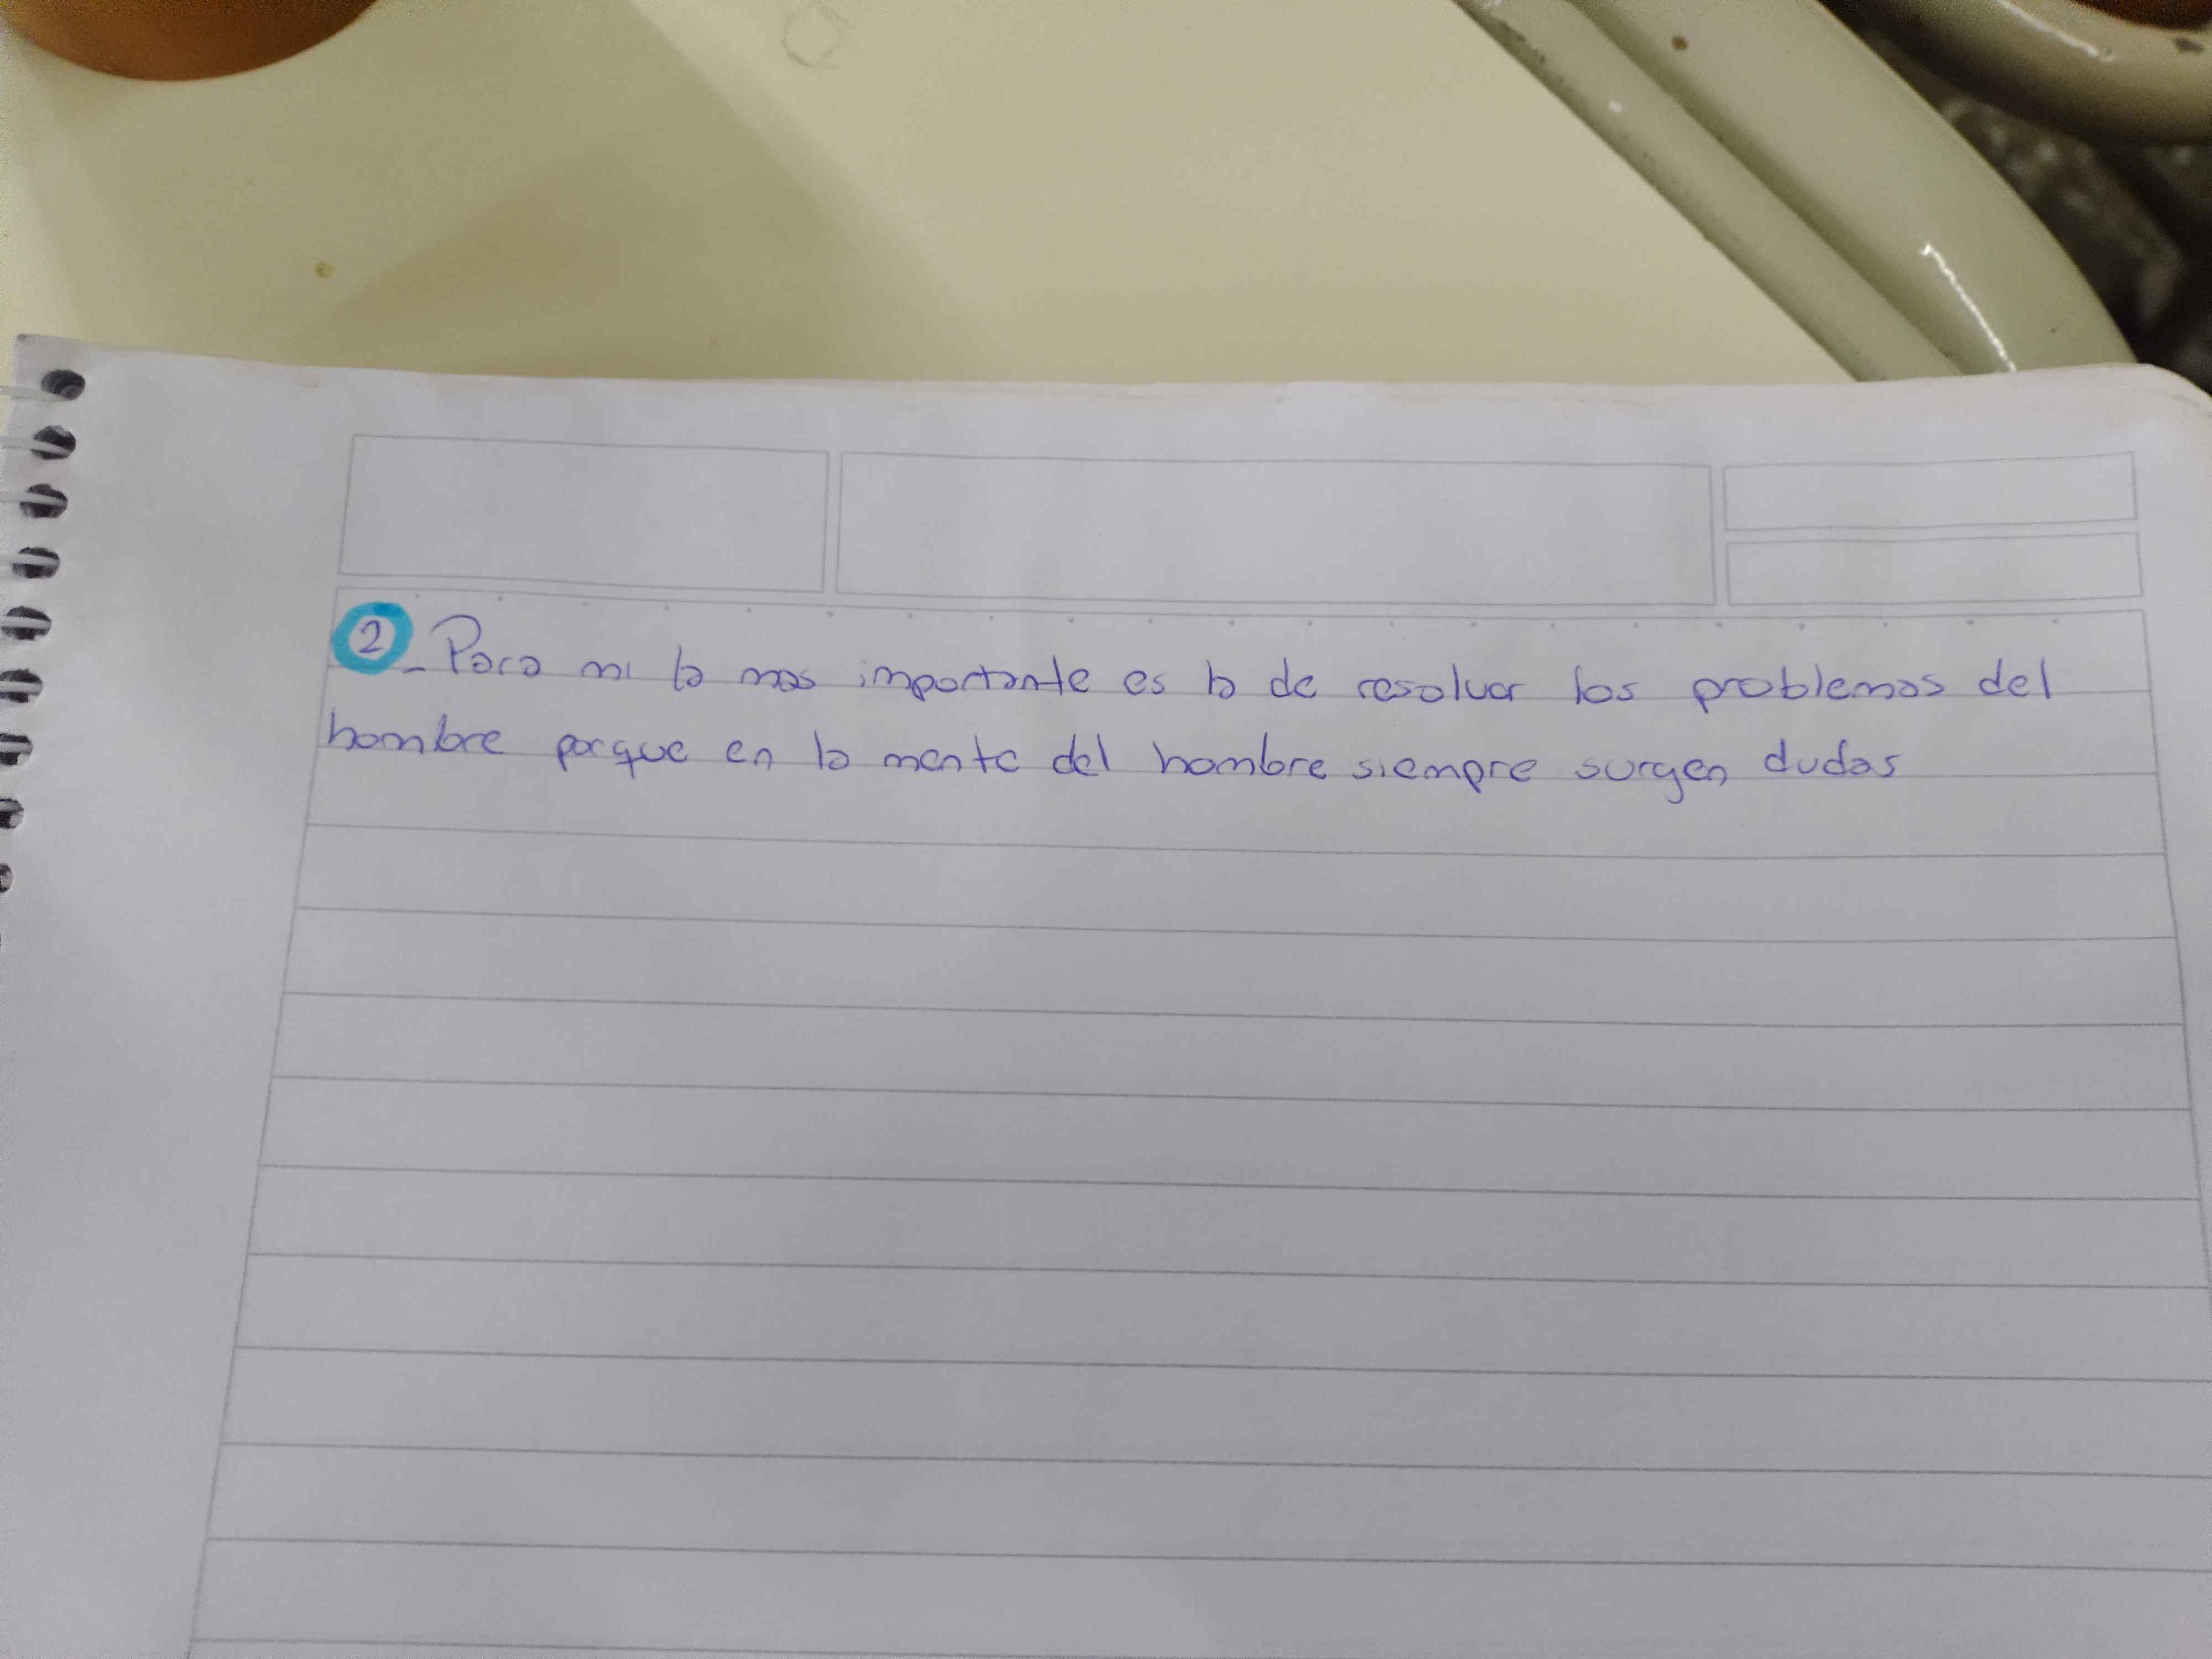 2_ Para mi la mas importante es la de resolver los problemas del
hombre porque en la mente del hombre siempre surgen dudas